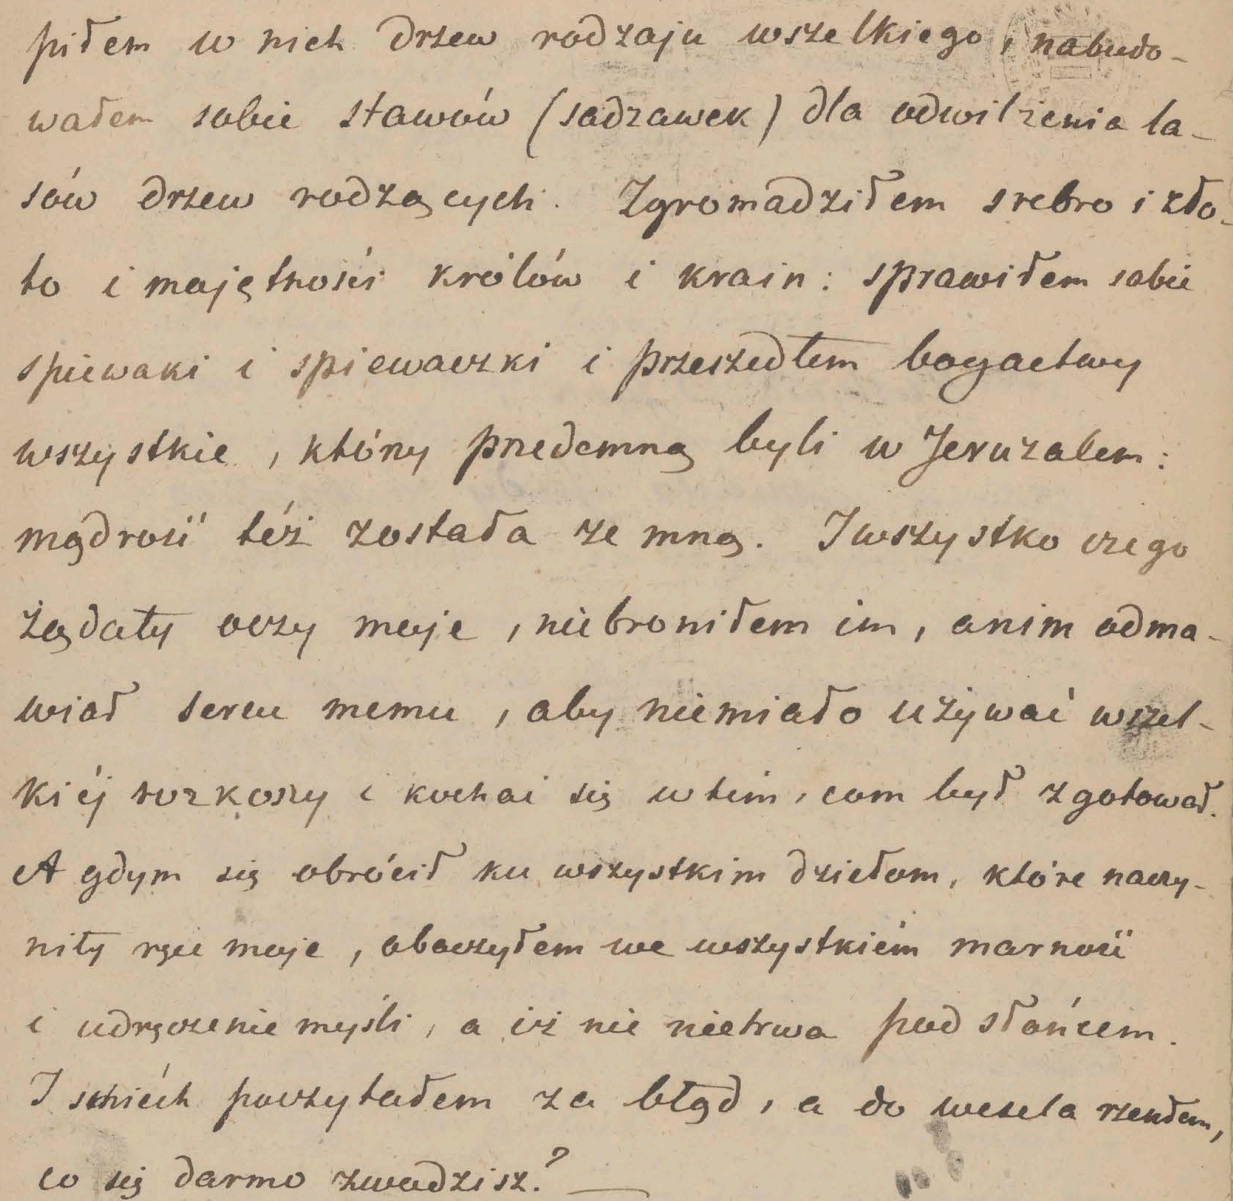 piłem w nich drzew rodzaju wszelkiego, nabudo-
wałem sobie stawów (sadzawek) dla odwilżenia la-
sów drzew rodzących. Zgromadziłem srebro i zło-
to i majętności królów i krain: sprawiłem sobie
spiewaki i spiewaczki i przeszedłem bogactwy
wszystkie, którzy przedemną byli w Jeruzalem:
mądrość też została ze mną. I wszystko czego
żądały oczy moje, niebroniłem im, anim odma-
wiał sercu memu, aby niemiało używać wszel-
kiéj rozkoszy i kochać się w tém, com był zgotował.
A gdym się obrócił ku wszystkim dziełom, które naczy-
niły ręce moje, obaczyłem we wszystkiém marność
i udręczenie myśli, a iż nic nietrwa pod słońcem.
I śmiéch poczytałem za błąd, a do wesela rzekłem,
co się darmo zwodzisz? —